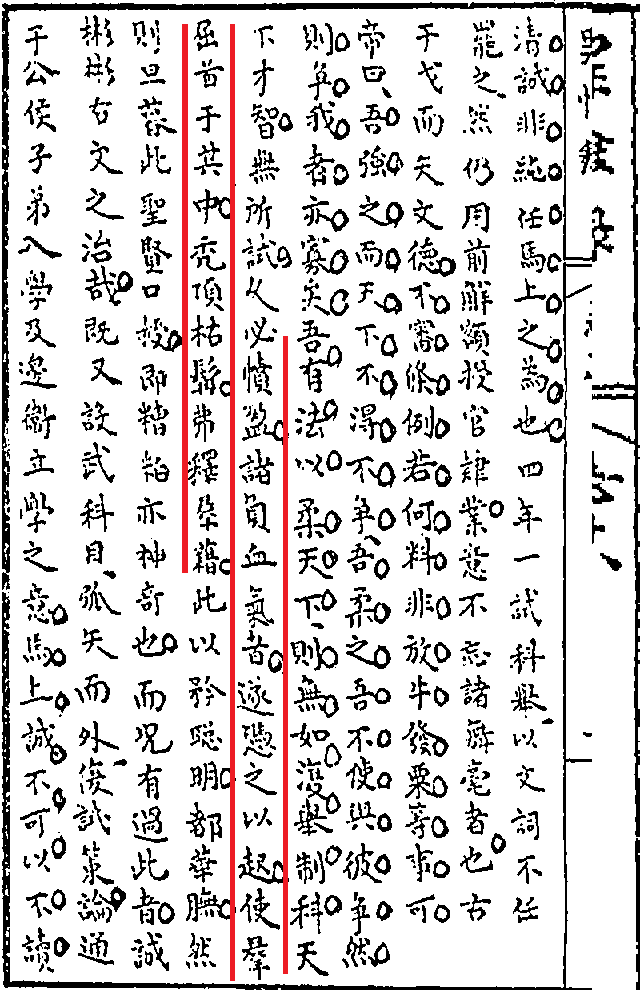 清誠非純任馬上之為也四年一試科舉以文詞不任
罷之然仍用前解額授官肄業意不忘諸舞毫者也古
于戈而矢文德不審條例若何料非放牛發粟等事可
帝曰吾強之而天下不得不爭吾柔之吾不使與彼爭然
則爭我者亦寡矣吾有法以柔天下則無如復舉制科天
下才智無所試久必憤盈諸負血氣者遂憑之以起使羣
屈首于其中禿頂枯髯弗釋桊藉此以矜聰明都華膴然
則旦暮此聖賢口授即糟粕亦神奇也而况有過此者誠
彬彬右文之治哉既又設武科目弧矢而外復試策論通
于公侯子弟入學及邊衛立學之意馬上誠不可以不讀